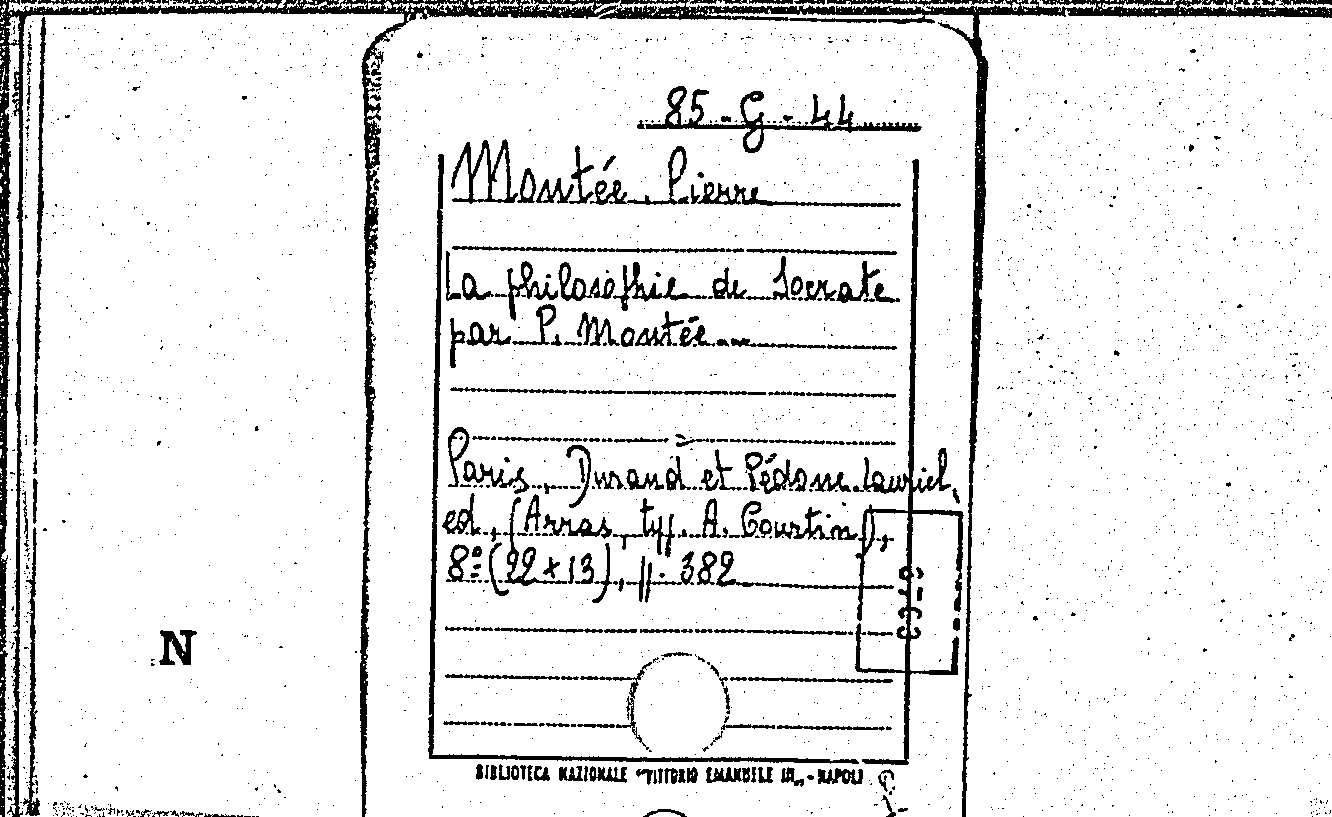 85-G-44
Montée, Pierre
La philosophie de Socrate
par P. Montée...
Paris, Durand et Pédone-Lauriel,
ed, (Arras, typ. A. Courtin),
8º (22x13), pp. 382
N
BIBLIOTECA NAZIONALE "VITTORIO EMANUELE III" - NAPOLI